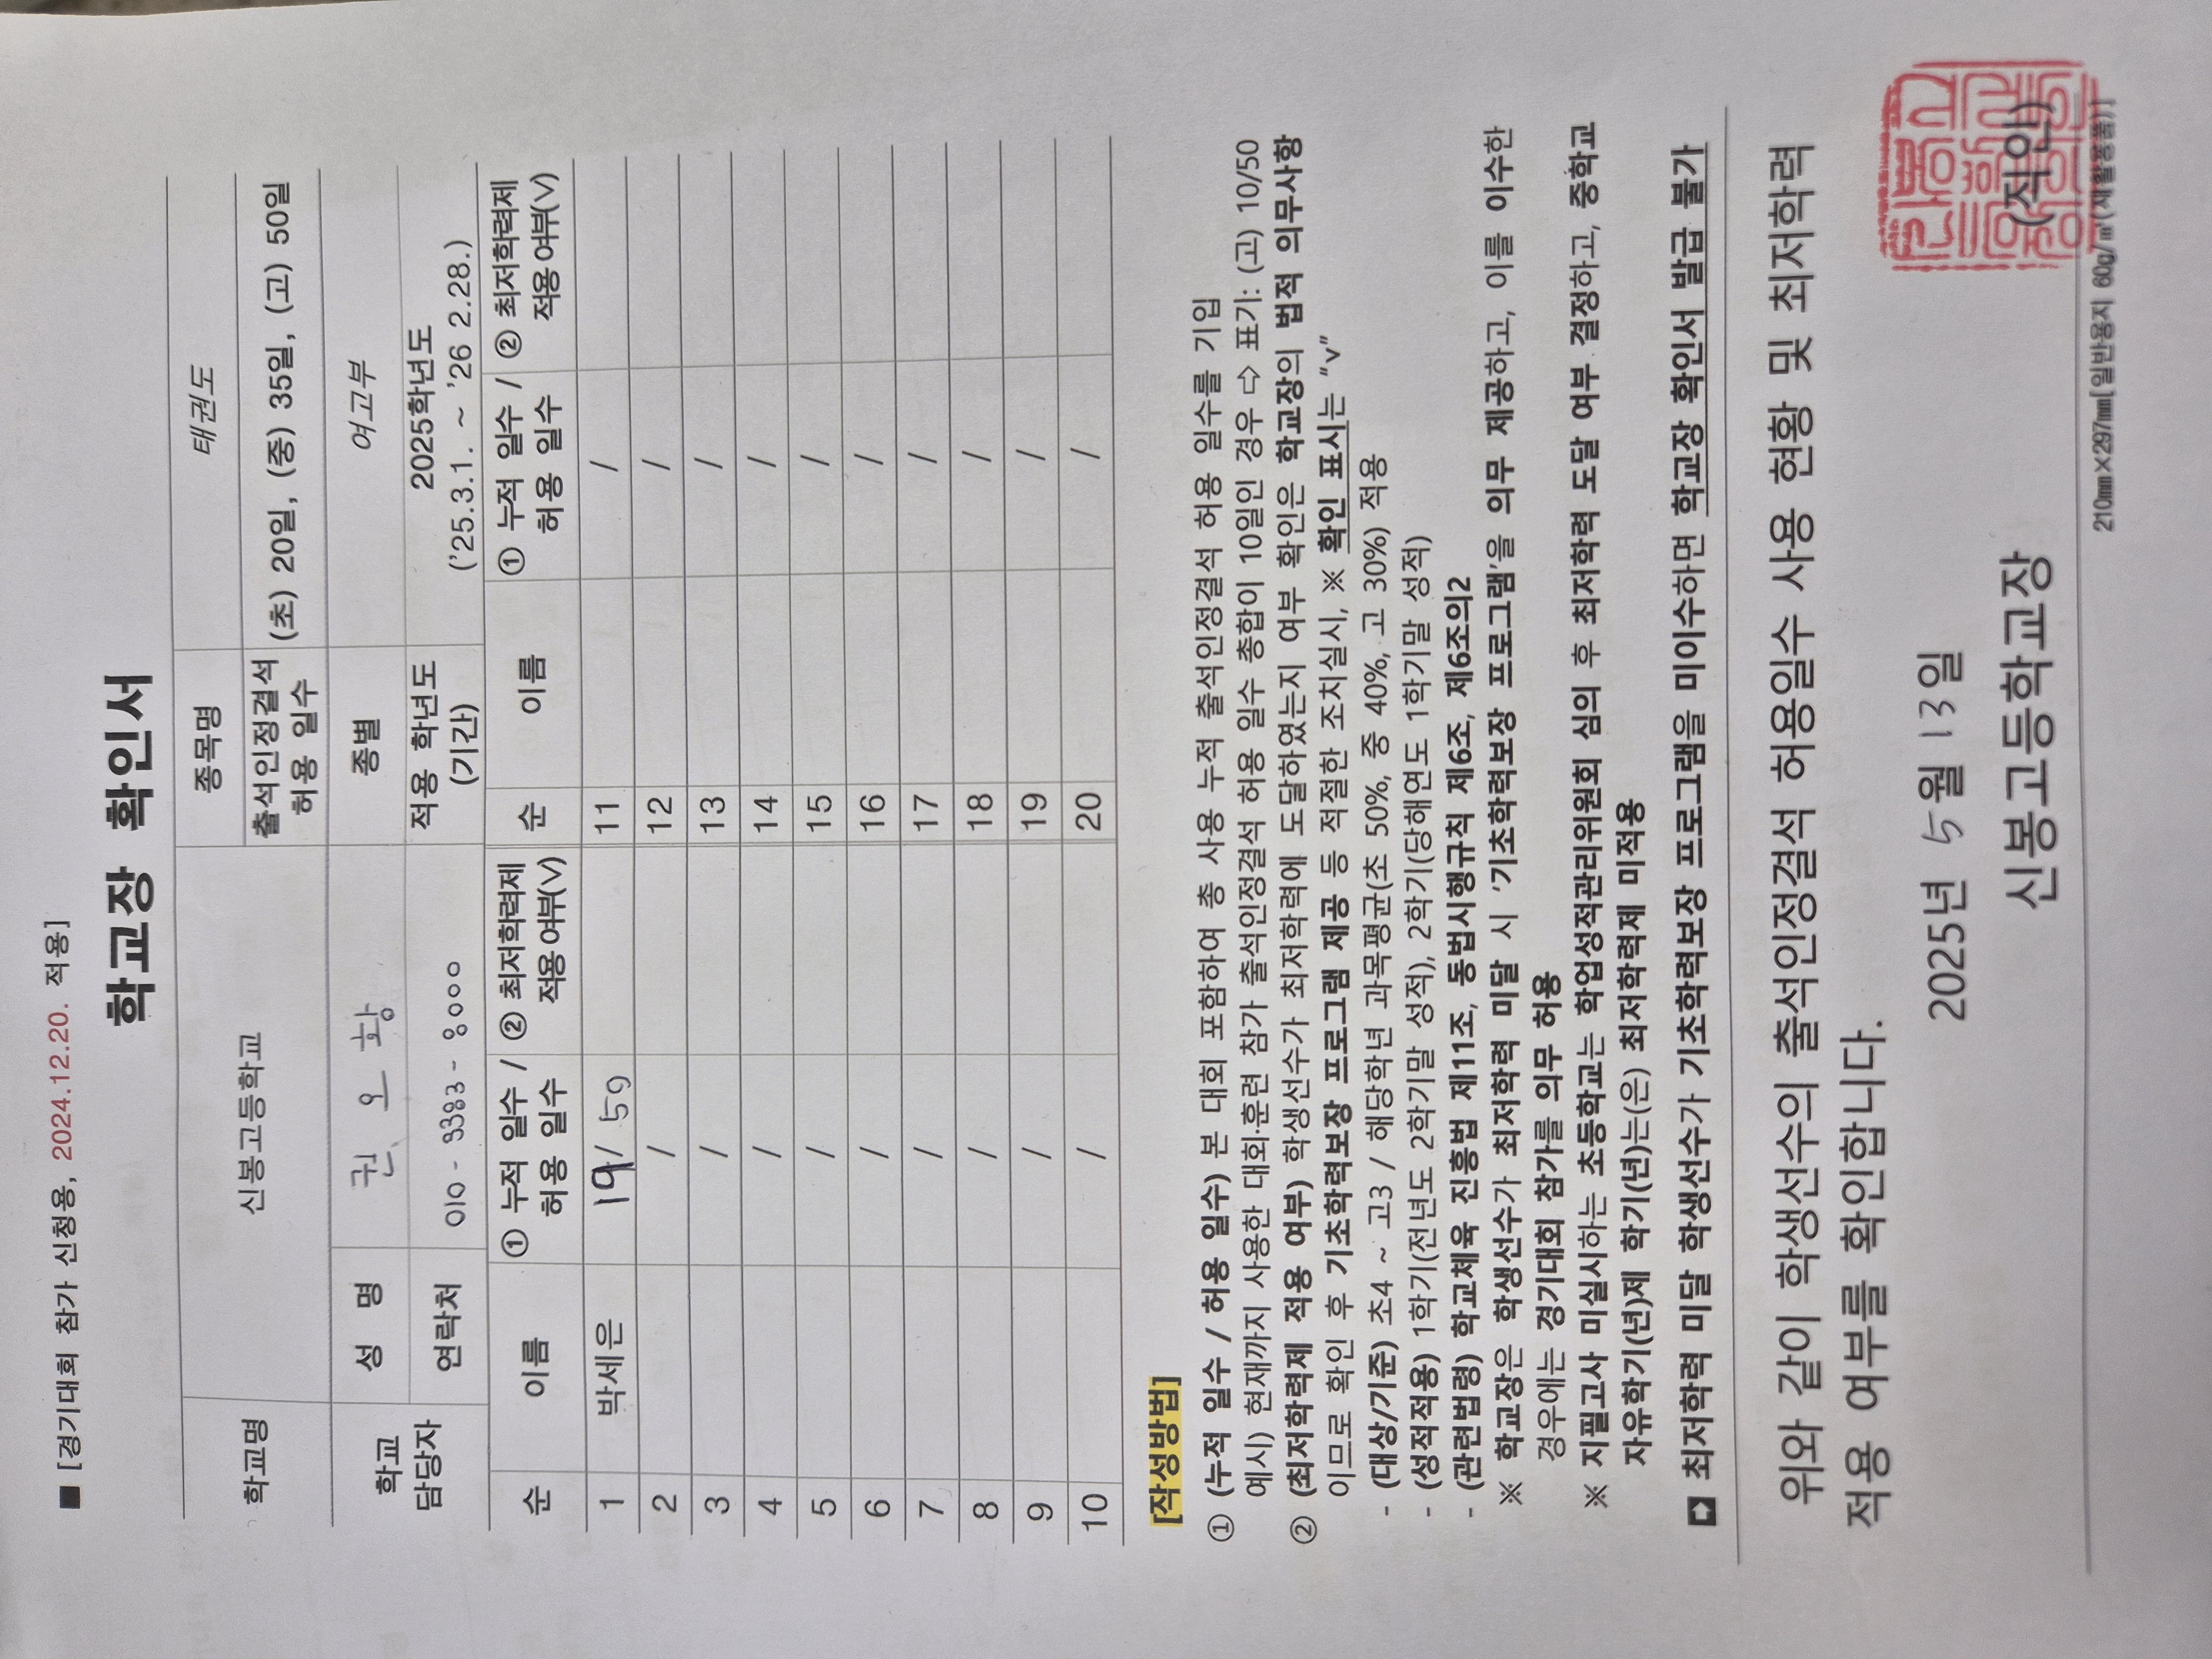 ■ [경기대회 참가 신청용, 2024.12.20. 적용]
학교장 확인서
학교명 신봉고등학교 종목명 태권도
출석인정결석 허용 일수 (초) 20일, (중) 35일, (고) 50일
학교 담당자 성 명 권 오 황 종별 여고부
연락처 010 - 9383 - 8000 적용 학년도 (기간) 2025학년도 ('25.3.1. ~ '26 2.28.)
순 이름 ① 누적 일수 / 허용 일수 ② 최저학력제 적용여부(V) 순 이름 ① 누적 일수 / 허용 일수 ② 최저학력제 적용여부(V)
1 박세은 19 / 50 11 /
2 / 12 /
3 / 13 /
4 / 14 /
5 / 15 /
6 / 16 /
7 / 17 /
8 / 18 /
9 / 19 /
10 / 20 /
[작성방법]
① (누적 일수 / 허용 일수) 본 대회 포함하여 총 사용 누적 출석인정결석 허용 일수를 기입
예시) 현재까지 사용한 대회·훈련 참가 출석인정결석 허용 일수 총합이 10일인 경우 ⇨ 표기: (고) 10/50
② (최저학력제 적용 여부) 학생선수가 최저학력에 도달하였는지 여부 확인은 학교장의 법적 의무사항
이므로 확인 후 기초학력보장 프로그램 제공 등 적절한 조치실시, ※ 확인 표시는 "v"
- (대상/기준) 초4 ~ 고3 / 해당학년 과목평균(초 50%, 중 40%, 고 30%) 적용
- (성적적용) 1학기(전년도 2학기말 성적), 2학기(당해연도 1학기말 성적)
- (관련법령) 학교체육 진흥법 제11조, 동법시행규칙 제6조, 제6조의2
※ 학교장은 학생선수가 최저학력 미달 시 '기초학력보장 프로그램'을 의무 제공하고, 이를 이수한
경우에는 경기대회 참가를 의무 허용
※ 지필고사 미실시하는 초등학교는 학업성적관리위원회 심의 후 최저학력 도달 여부 결정하고, 중학교
자유학기(년)제 학기(년)는(은) 최저학력제 미적용
최저학력 미달 학생선수가 기초학력보장 프로그램을 미이수하면 학교장 확인서 발급 불가
위와 같이 학생선수의 출석인정결석 허용일수 사용 현황 및 최저학력
적용 여부를 확인합니다.
2025년 5월 13일
신봉고등학교장 (직인)
210㎜×297㎜[일반용지 60g/㎡(재활용품)]